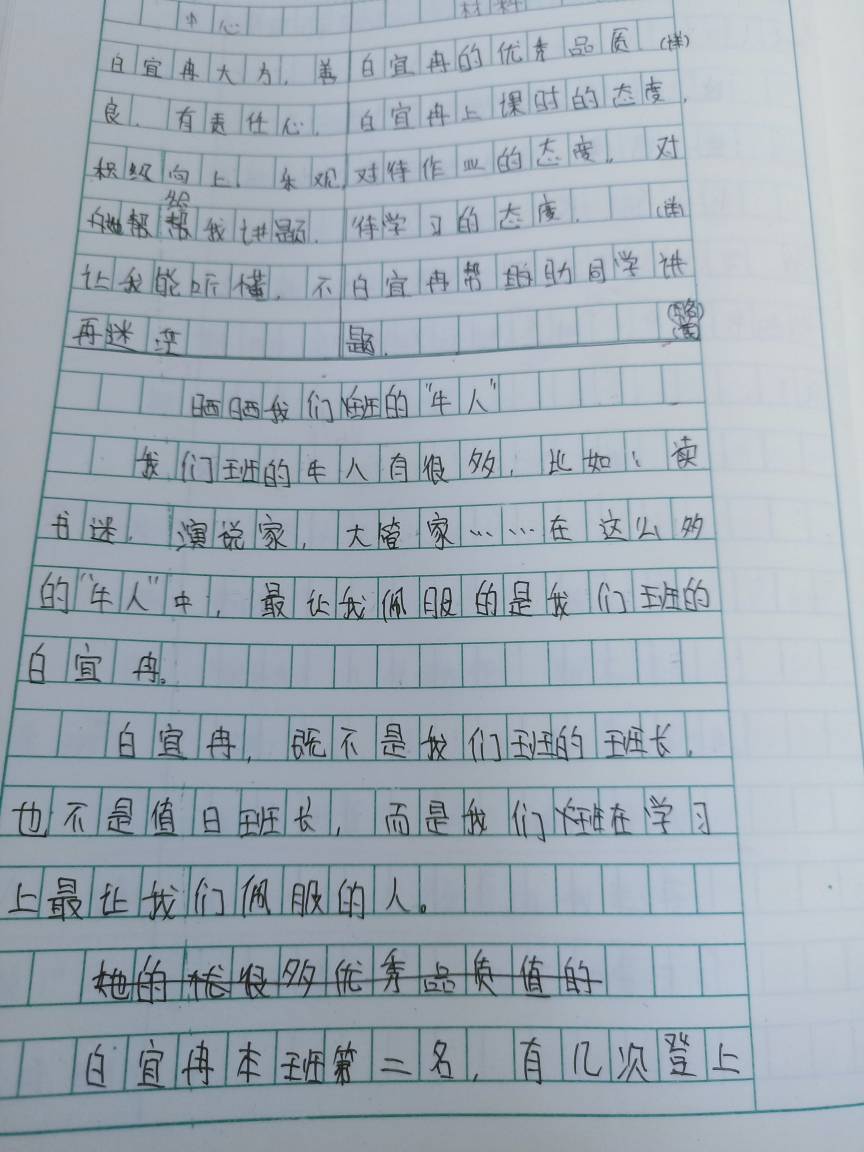 中心 材料
白宜冉大方，善 白宜冉的优秀品质（详）
良，有责任心， 白宜冉上课时的态度，
积级向上，乐观， 对待作业的态度，对
她帮帮给我讲题， 待学习的态度，（详）
让我能听懂，不 白宜冉帮助同学讲
再迷茫 题，
晒晒我们班的"牛人"
我们班的牛人有很多，比如：读
书迷，演说家，大管家……在这么多
的"牛人"中，最让我佩服的是我们班的
白宜冉。
白宜冉，既不是我们班的班长，
也不是值日班长，而是我们班在学习
上最让我们佩服的人。
她的优很多优秀品质值的
白宜冉本班第二名，有几次登上